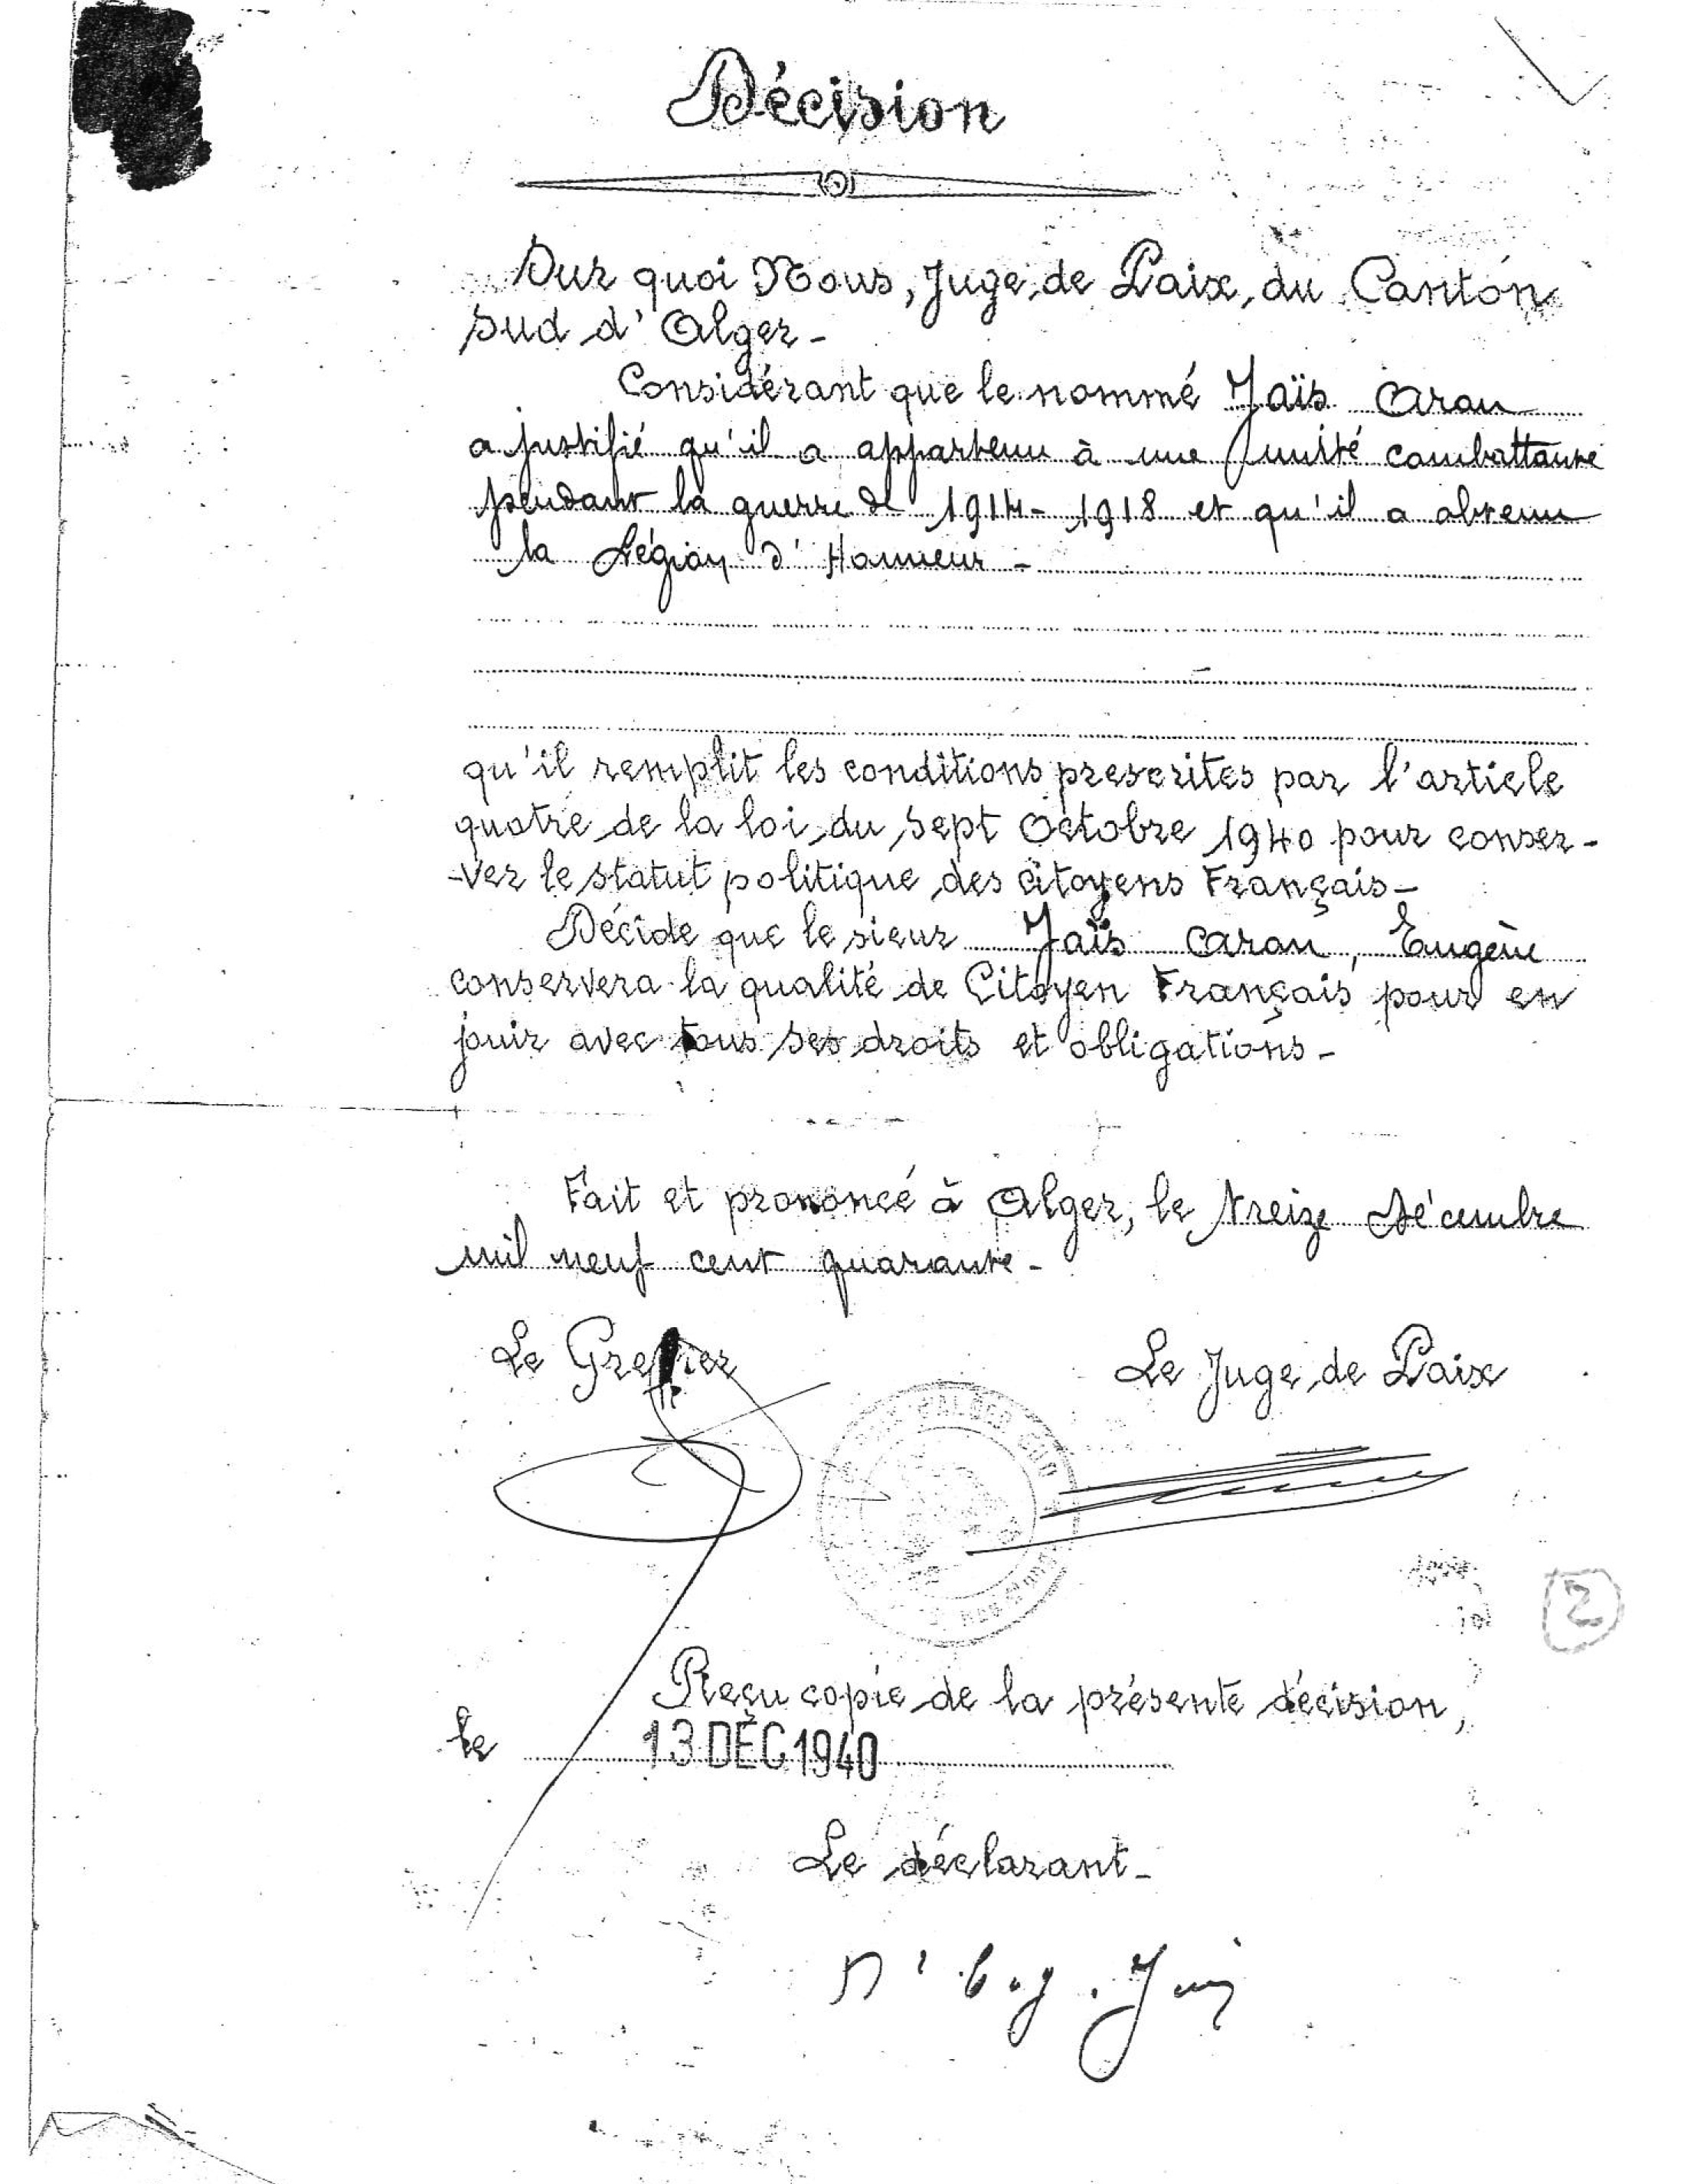 Décision
Sur quoi Nous, Juge de Paix, du Canton
Sud d'Alger -
Considérant que le nommé Jaïs Aron
a justifié qu'il a appartenu à une unité combattante
pendant la guerre de 1914-1918 et qu'il a obtenu
la Légion d'Honneur -
qu'il remplit les conditions prescrites par l'article
quatre de la loi du sept Octobre 1940 pour conser-
-ver le statut politique des citoyens Français -
Décide que le sieur Jaïs Aron, Eugène
conservera la qualité de Citoyen Français pour en
jouir avec tous ses droits et obligations -
Fait et prononcé à Alger, le treize Décembre
mil neuf cent quarante -
Le Greffier Le Juge de Paix
D'ALGER SUD
2
Reçu copie de la présente décision,
le 13 DÉC 1940
Le déclarant -